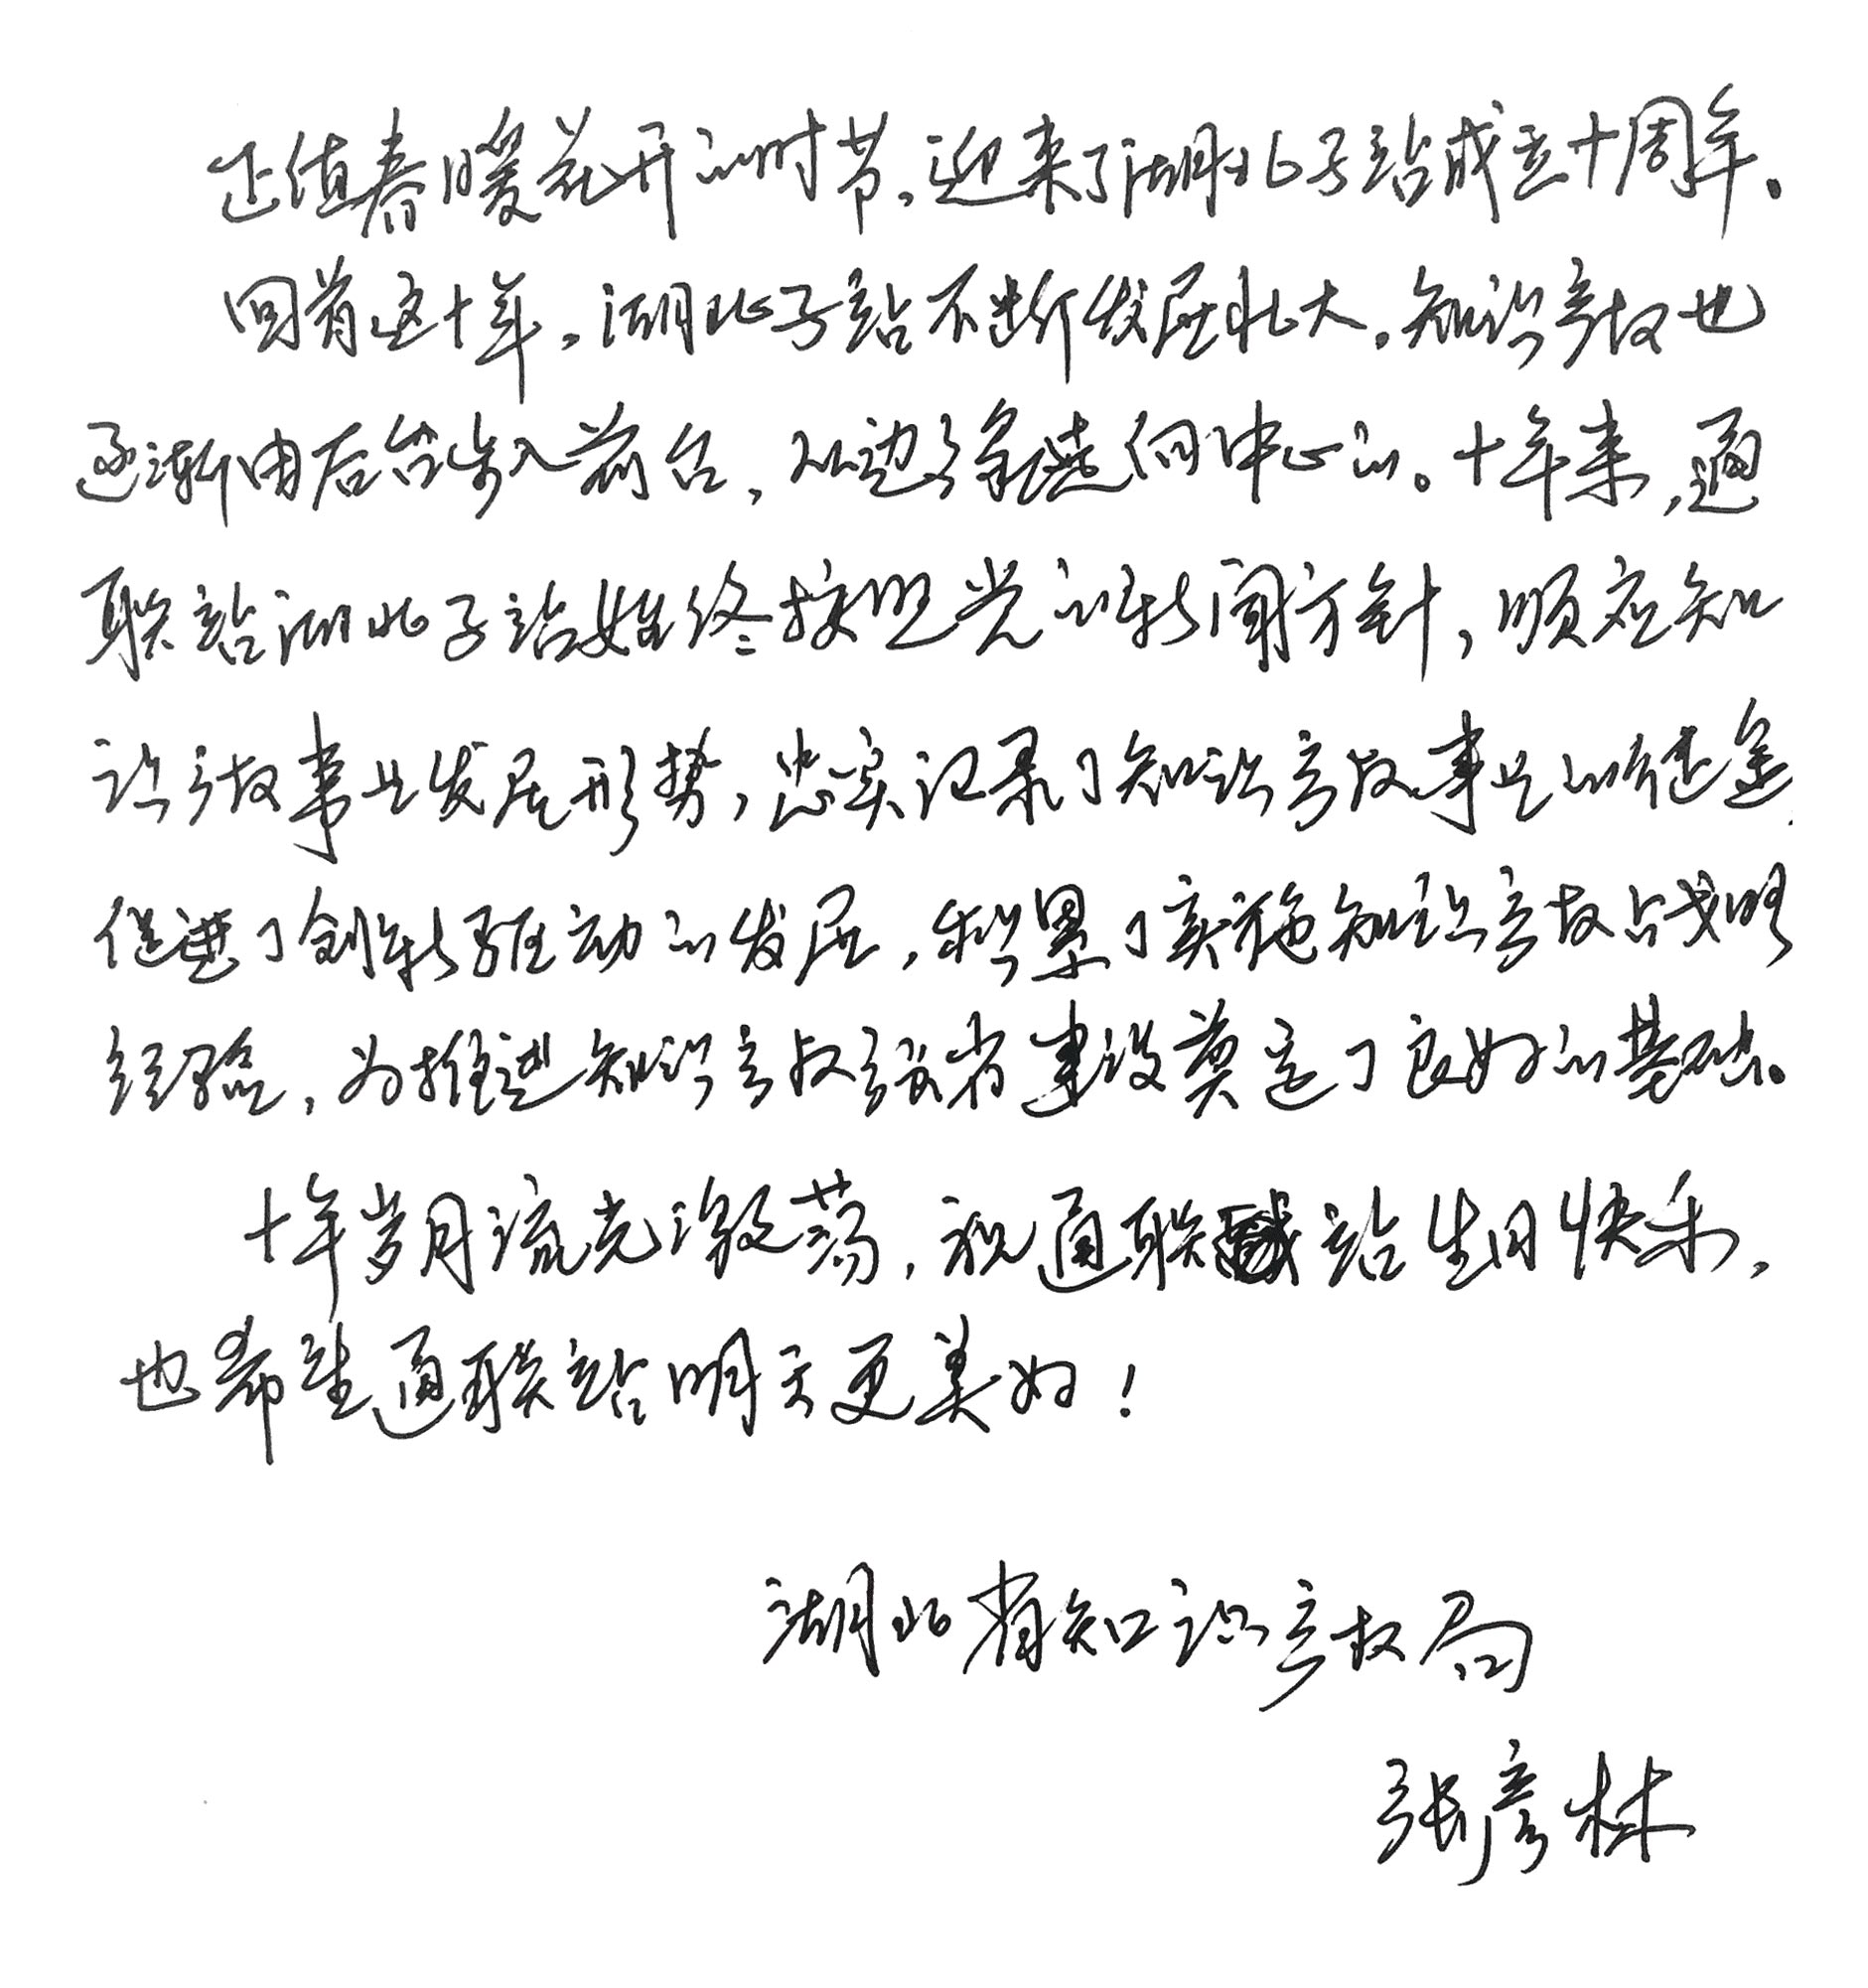 正值春暖花开的时节,迎来了湖北子站成立十周年。
回首这十年,湖北子站不断发展壮大,知识产权也
逐渐由后台步入前台,从边缘走向中心的。十年来,通
联站湖北子站始终按照党的新闻方针,顺应知
识产权事业发展形势,忠实记录了知识产权事业的征途
促进了创新驱动的发展,积累了实施知识产权战略
经验,为推进知识产权强省建设奠定了良好的基础。
十年岁月流光激荡,祝通联站生日快乐,
也希望通联站明天更美好!
湖北省知识产权局
张彦林